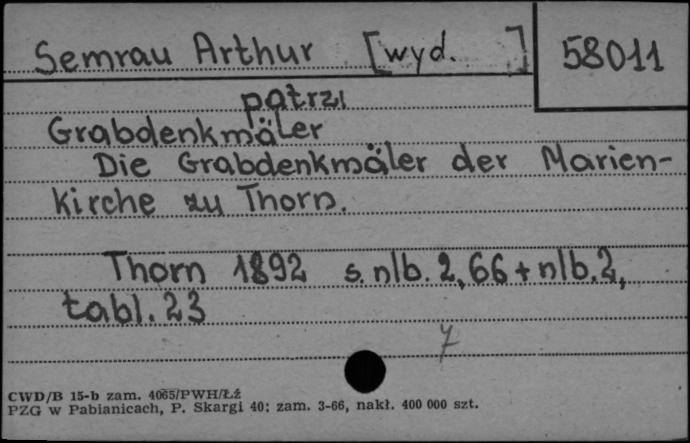 Semrau Arthur [wyd. ]
58011
patrz
Grabdenkmäler
Die Grabdenkmäler der Marien-
kirche zu Thorn.
Thorn 1892 s. nlb. 2, 66 + nlb. 2,
tabl. 23
7
CWD/B 15-b zam. 4065/PWH/Łź
PZG w Pabianicach, P. Skargi 40; zam. 3-66, nakł. 400 000 szt.